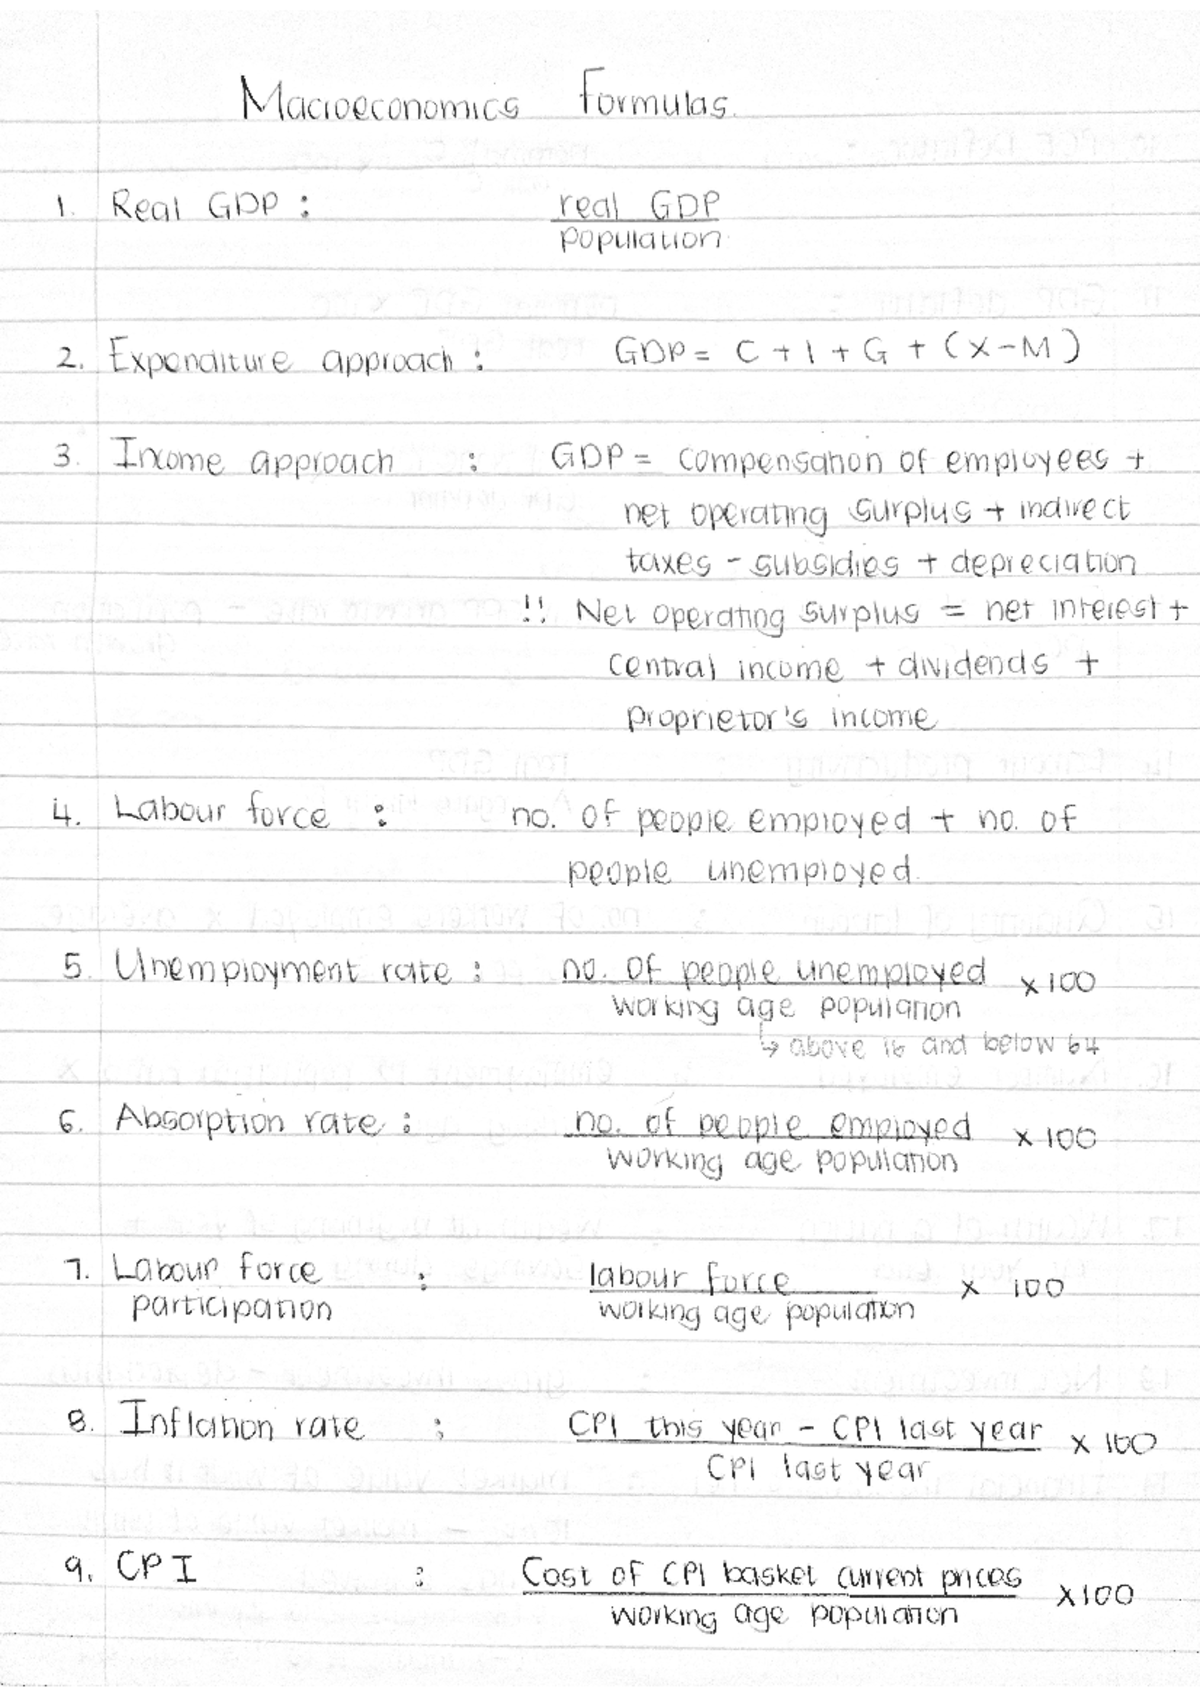 Macroeconomics Formulas.
1. Real GDP : real GDP
population
2. Expenditure approach : GDP = C + I + G + (X - M)
3. Income approach : GDP = compensation of employees +
net operating surplus + indirect
taxes - subsidies + depreciation
!! Net operating surplus = net interest +
central income + dividends +
proprietor's income
4. Labour force : no. of people employed + no. of
people unemployed.
5. Unemployment rate : no. of people unemployed x 100
working age population
↳ above 16 and below 64
6. Absorption rate : no. of people employed x 100
working age population
7. Labour force : labour force x 100
participation working age population
8. Inflation rate : CPI this year - CPI last year x 100
CPI last year
9. CPI : Cost of CPI basket current prices x100
working age population